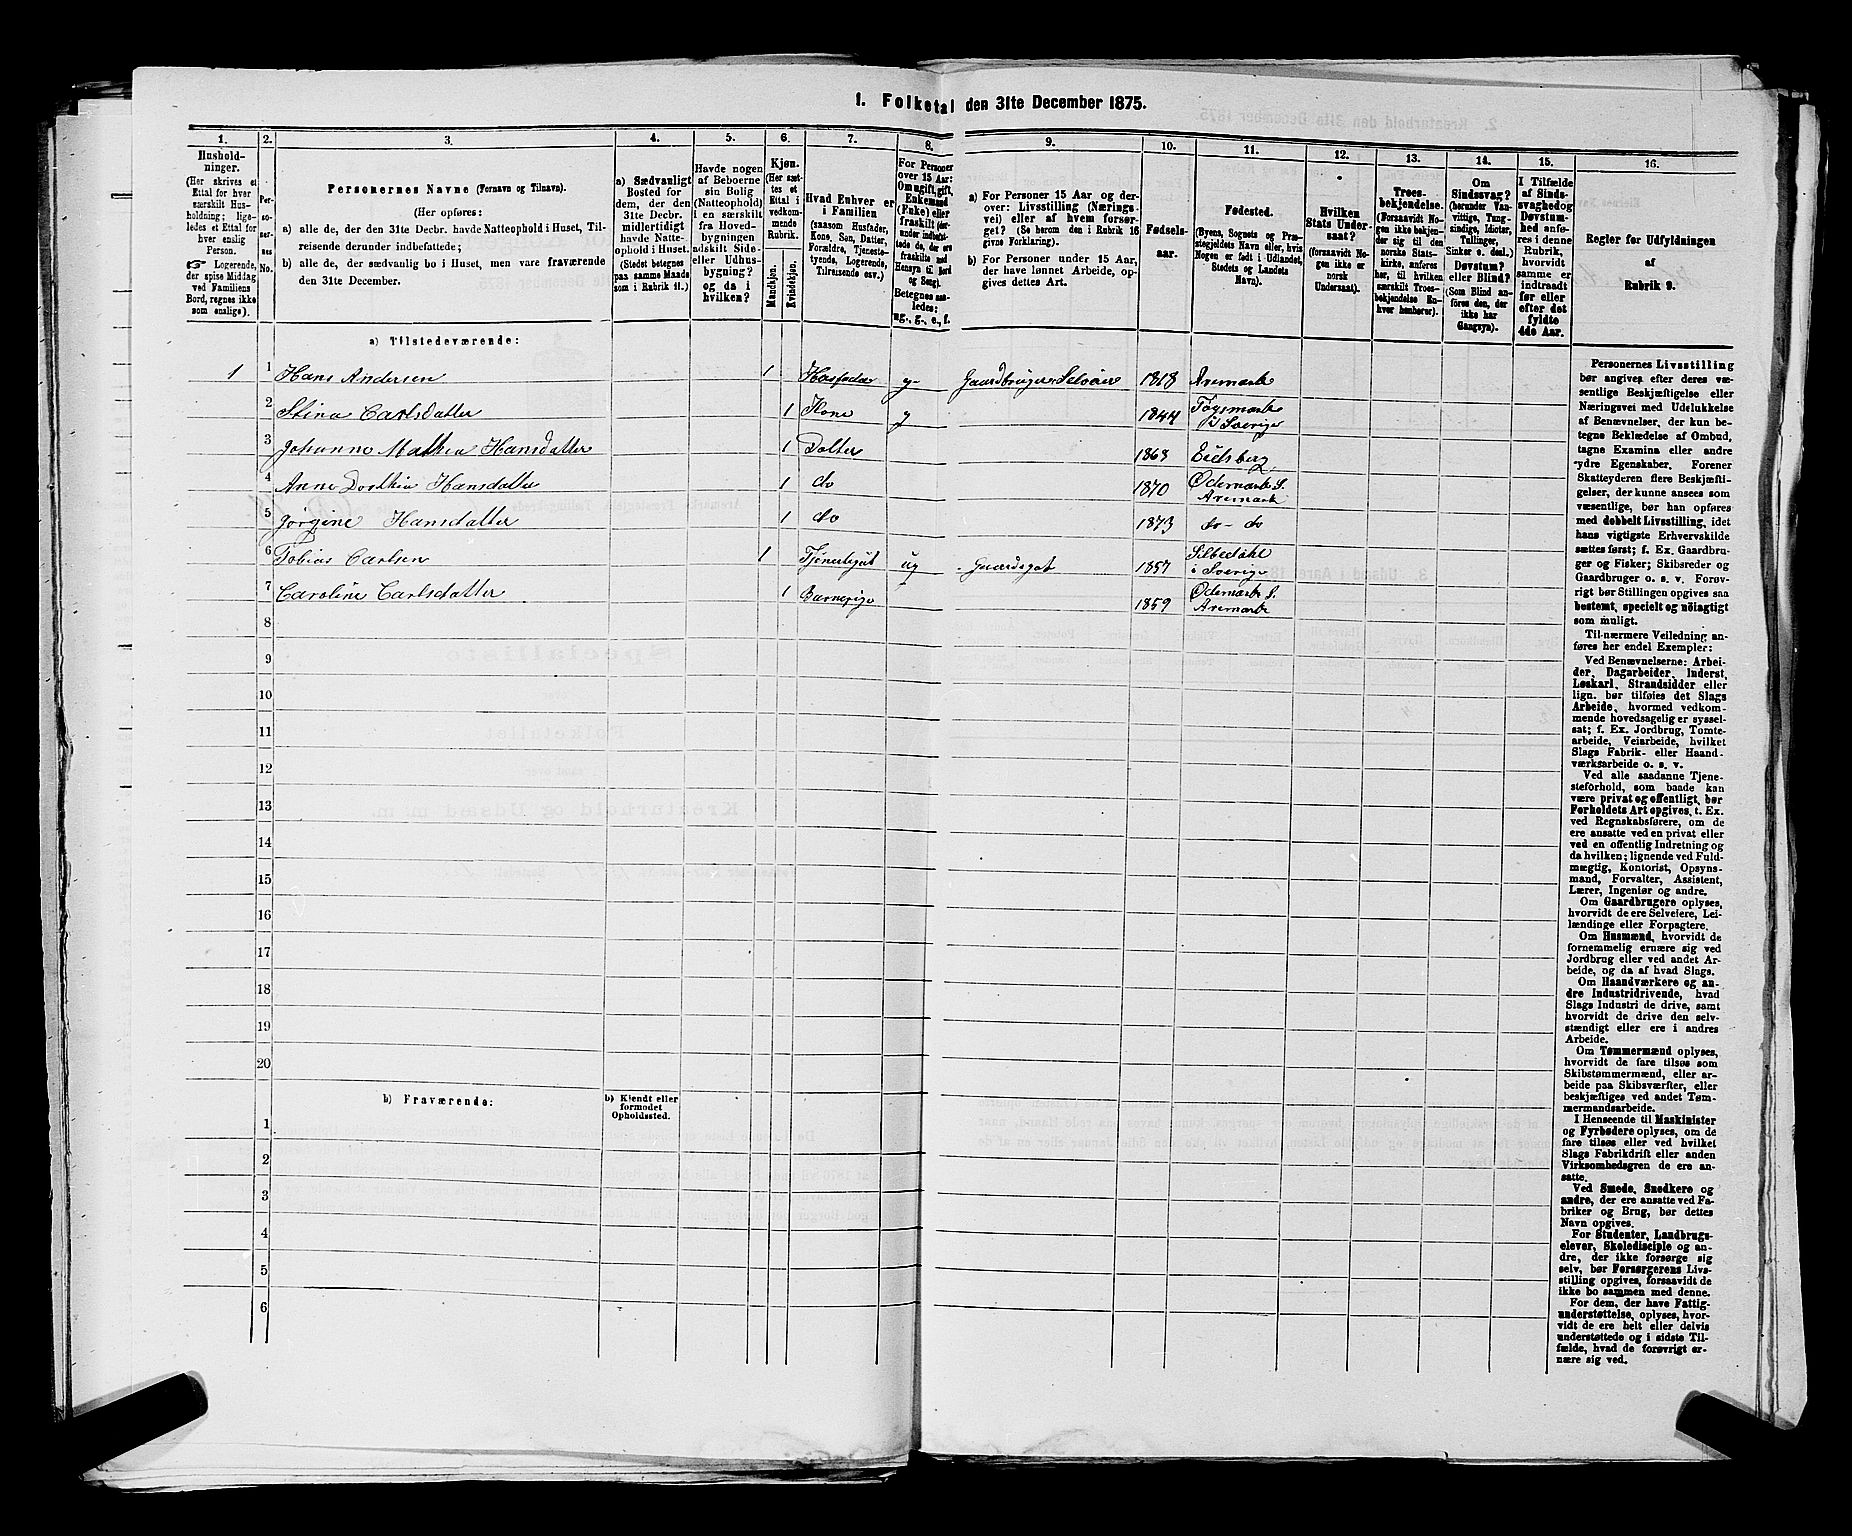 1. Folketal den 31te December 1875.
1. 2. 3. 4. 5. 6. 7. 8. 9. 10. 11. 12. 13. 14. 15. 16.
Hushold-
ninger.
(Her skrives et
Ettal for hver
særskilt Hus-
holdning; lige-
ledes et Ettal for
hver enslig
Person.
☞ Logerende,
der spise Middag
ved Familiens
Bord, regnes ikke
som enslige).
Per-
so-
ner-
nes
No.
Personernes Navne (Fornavn og Tilnavn).
(Her opføres:
a) alle de, der den 31te Decbr. havde Natteophold i Huset, Til-
reisende derunder indbefattede;
b) alle de, der sædvanlig bo i Huset, men vare fraværende
den 31te December.
a) Sædvanligt
Bosted for
dem, der den
31te Decbr.
midlertidigt
havde Natte-
ophold i Huset.
(Stedet betegnes
paa samme Maade
som i Rubrik 11.)
Havde nogen
af Beboerne
sin Bolig
(Natteophold)
i en særskilt
fra Hoved-
bygningen
adskilt Side-
eller Udhus-
bygning?
og da i
hvilken?
Kjøn.
(Her sæt-
tes et
Ettal i
vedkom-
mende
Rubrik.
Mandkjøn.
Kvindekjøn.
Hvad Enhver er
i Familien
(saasom Husfader,
Kone, Søn, Datter,
Forældre, Tjeneste-
tyende, Logerende,
Tilreisende osv.)
For Personer
over 15 Aar:
Om ugift, gift,
Enkemand
(Enke) eller
fraskilt
Betegnes saa-
ledes:
ug-, g-, e-, f.
a) For Personer 15 Aar og der-
over: Livsstilling (Nærings-
vei) eller af hvem forsør-
get? (Se herom den i Rubrik 16
givne Forklaring).
b) For Personer under 15 Aar,
der have lønnet Arbeide, op-
gives dettes Art.
Fødsels-
aar.
Fødested.
(Byens, Sognets og Præ-
stegjeldets Navn eller, hvis
Nogen er født i Udlandet,
Stedets og Landets
Navn).
Hvilken
Stats Under-
saat?
(forsaavidt No-
gen ikke er
norsk
Undersaat).
Troes-
bekjendelse.
(Forsaavidt No-
gen ikke bekjen-
der sig til den
norske Stats-
kirke, anføres
her, til hvilken
særskilt Troes-
bekjendelse En-
hver henhører).
Om
Sindssvag?
(herunder Van-
vittige, Tung-
sindige, Idioter,
Tullinger,
Sinker o. desl.)
Døvstum?
eller Blind?
(Som Blind an-
føres den, der
ikke har
Gangsyn).
I Tilfælde
af Sinds-
svaghed og
Døvstum-
hed anfø-
res i denne
Rubrik,
hvorvidt
samme er
indtraadt
før eller
efter det
fyldte
4de Aar.
Regler for Udfyldningen
af
Rubrik 9.
a) Tilstedeværende:
1 1 Hans Andersen 1 Husfader g- Gaardbruger Selveier 1818 Aremark
2 Stina Carlsdatter 1 Kone g 1844 Togsmark
i Sverige
3 Johanne Mathea Hansdatter 1 Datter 1863 Eidsberg
4 Anne Dorthea Hansdatter 1 do 1870 Ødemark S.
Aremark
5 Jørgine Hansdatter 1 do 1873 do- do
6 Tobias Carlsen 1 Tjenestegut ug Gaardsgut 1857
i Sverige
7 Caroline Carlsdatter 1 Barnepige 1859 Ødemark S.
Aremark
8
9
10
11
12
13
14
15
16
17
18
19
20
b) Fraværende:
b) Kjendt eller
formodet
Opholdssted.
1
2
3
4
5
6
Personernes Livsstilling
bør angives efter deres væ-
sentlige Beskjæftigelse eller
Næringsvei med Udelukkelse
af Benævnelser, der kun be-
tegne Beklædelse af Ombud,
tagne Examina eller andre
ydre Egenskaber. Forener
Skatteyderen flere Beskjæfti-
gelser, der kunne ansees som
væsentlige, bør han opføres
med dobbelt Livsstilling, idet
hans vigtigste Erhvervskilde
sættes først; f. Ex. Gaardbru-
ger og Fisker; Skibsreder og
Gaardbruger o. s. v. Forøv-
rigt bør Stillingen opgives saa
bestemt, specielt og nöiagtigt
som muligt.
Til nærmere Veiledning an-
føres her endel Exempler:
Ved Benævnelserne: Arbei-
der, Dagarbeider, Inderst,
Løskarl, Strandsidder eller
lign. bør tilføies det Slags
Arbeide, hvormed vedkom-
mende hovedsagelig er syssel-
sat; f. Ex. Jordbrug, Tomte-
arbeide, Veiarbeide, hvilket
Slags Fabrik- eller Haand-
værksarbeide o. s. v.
Ved alle saadanne Tjene-
steforhold, som baade kan
være privat og offentligt, bør
Forholdets Art opgives, t. Ex.
ved Regnskabsførere, om de
ere ansatte ved en privat eller
ved en offentlig Indretning og
da hvilken; lignende ved Fuld-
mægtig, Kontorist, Opsyns-
mand, Forvalter, Assistent,
Lærer, Ingeniør og andre.
Om Gaardbrugere oplyses,
hvorvidt de ere Selveiere, Lei-
lændinge eller Forpagtere.
Om Husmænd, hvorvidt de
fornemmelig ernære sig ved
Jordbrug eller ved andet Ar-
beide, og da af hvad Slags.
Om Haandværkere og an-
dre Industridrivende, hvad
Slags Industri de drive, samt
hvorvidt de drive den selv-
stændigt eller ere i andres
Arbeide.
Om Tømmermænd oplyses,
hvorvidt de fare tilsøs som
Skibstømmermænd, eller ar-
beide paa Skibsværfter, eller
beskjæftiges ved andet Tøm-
mermandsarbeide.
I Henseende til Maskinister
og Fyrbødere oplyses, om de
fare tilsøs eller ved hvilket
Slags Fabrikdrift eller anden
Virksomhedsgren de ere an-
satte.
Ved Smede, Snedkere og
andre, der ere ansatte ved Fa-
briker og Brug, bør dettes
Navn opgives.
For Studenter, Landbrugs-
elever, Skoledisciple og an-
dre, der ikke forsørge sig
selv, bør Forsørgerens Livs-
stilling opgives, forsaavidt de
ikke bo sammen med denne.
For dem, der have Fattig-
understøttelse, oplyses, hvor-
vidt de ere helt eller delvis
understøttede og i sidste Til-
fælde, hvad de forøvrigt er-
nære sig ved.